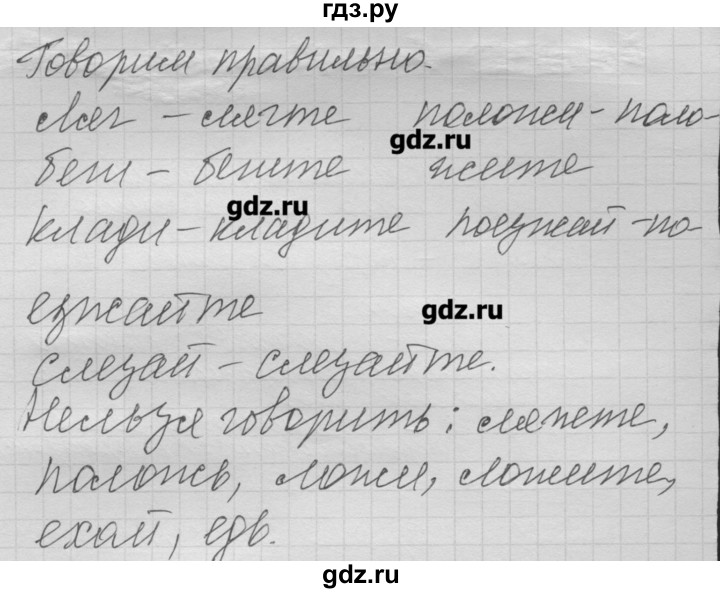 гдз.ру
Говорим правильно.
Ляг – лягте положи – поло-
gdz.ru
беги – бегите жите
gdz.ru
клади – кладите поезжай – по-
езжайте
gdz.ru
слезай – слезайте.
Нельзя говорить: ляжете,
положь, ложи, ложите,
ехай, едь.
gdz.ru